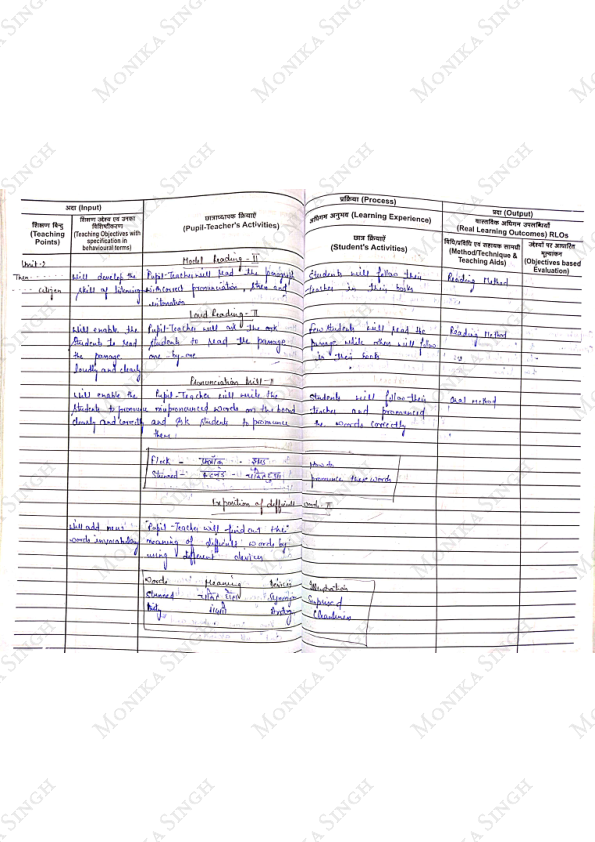 अदा (Input)
प्रक्रिया (Process)
प्रदा (Output)
शिक्षण बिन्दु
(Teaching
Points)
शिक्षण उद्देश्य एवं उनका
विशिष्टीकरण
(Teaching Objectives with
specification in
behavioural terms)
छात्राध्यापक क्रियाएँ
(Pupil-Teacher's Activities)
अधिगम अनुभव (Learning Experience)
छात्र क्रियाएँ
(Student's Activities)
वास्तविक अधिगम उपलब्धियाँ
(Real Learning Outcomes) RLOs
विधि/प्रविधि एवं सहायक सामग्री
(Method/Technique &
Teaching Aids)
उद्देश्यों पर आधारित
मूल्यांकन
(Objectives based
Evaluation)
Model Reading - II
Unit-
Then
Will develop the
skill of listening
Pupil-Teacher will read the paragraph
with correct pronunciation, and
intonation
Students will follow their
teacher in their books
Reading Method
Loud Reading - II
Will enable the
Students to read
the passage
loudly and clearly
Pupil-Teacher will ask the
students to read the passage
one-by-one
Few students will read the
passage while other will follow
in their books
Reading Method
Pronunciation Drill - II
Will enable the
students to pronounce
clearly and correctly
Pupil-Teacher will write the
mispronounced words on the board
and ask students to pronounce
them
Students will follow their
teacher and pronounced
the words correctly
Oral method
Flock -
Stunned -
How to
pronounce their words
Exposition of difficult word - II
Will add new
words in vocabulary
Pupil-Teacher will find out the
meaning of difficult words by
using different devices
Words Meaning Devices
Stunned
Surprised
Cleanliness
MONIKA SINGH